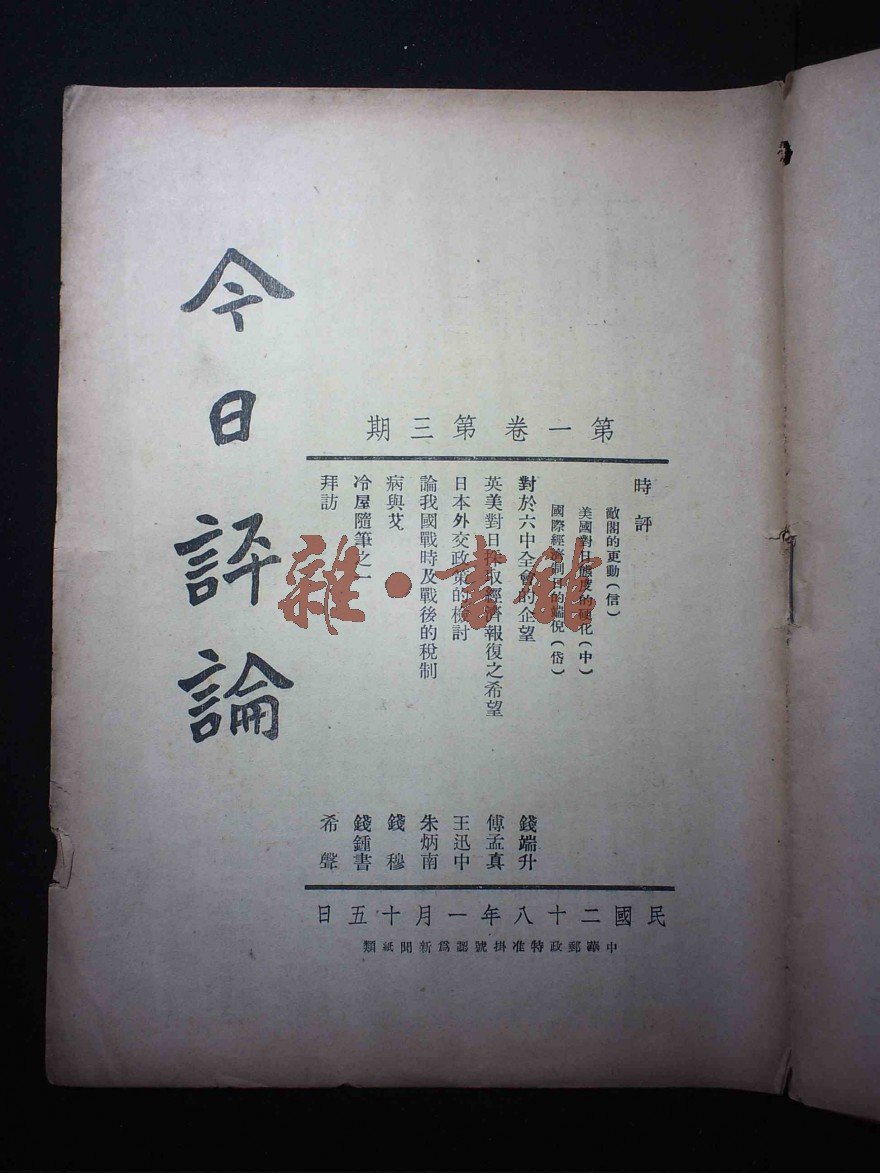 今日評論
第一卷第三期
時評
敵閣的更動（信）
美國對日態度的硬化（中）
國際經濟制日的端倪（岱）
對於六中全會的企望 錢端升
英美對日採取經濟報復之希望 傅孟真
日本外交政策的檢討 王迅中
論我國戰時及戰後的稅制 朱炳南
病與艾 錢穆
冷屋隨筆之一 錢鍾書
拜訪 希聲
民國二十八年一月十五日
中華郵政特准掛號認爲新聞紙類
雜·書館